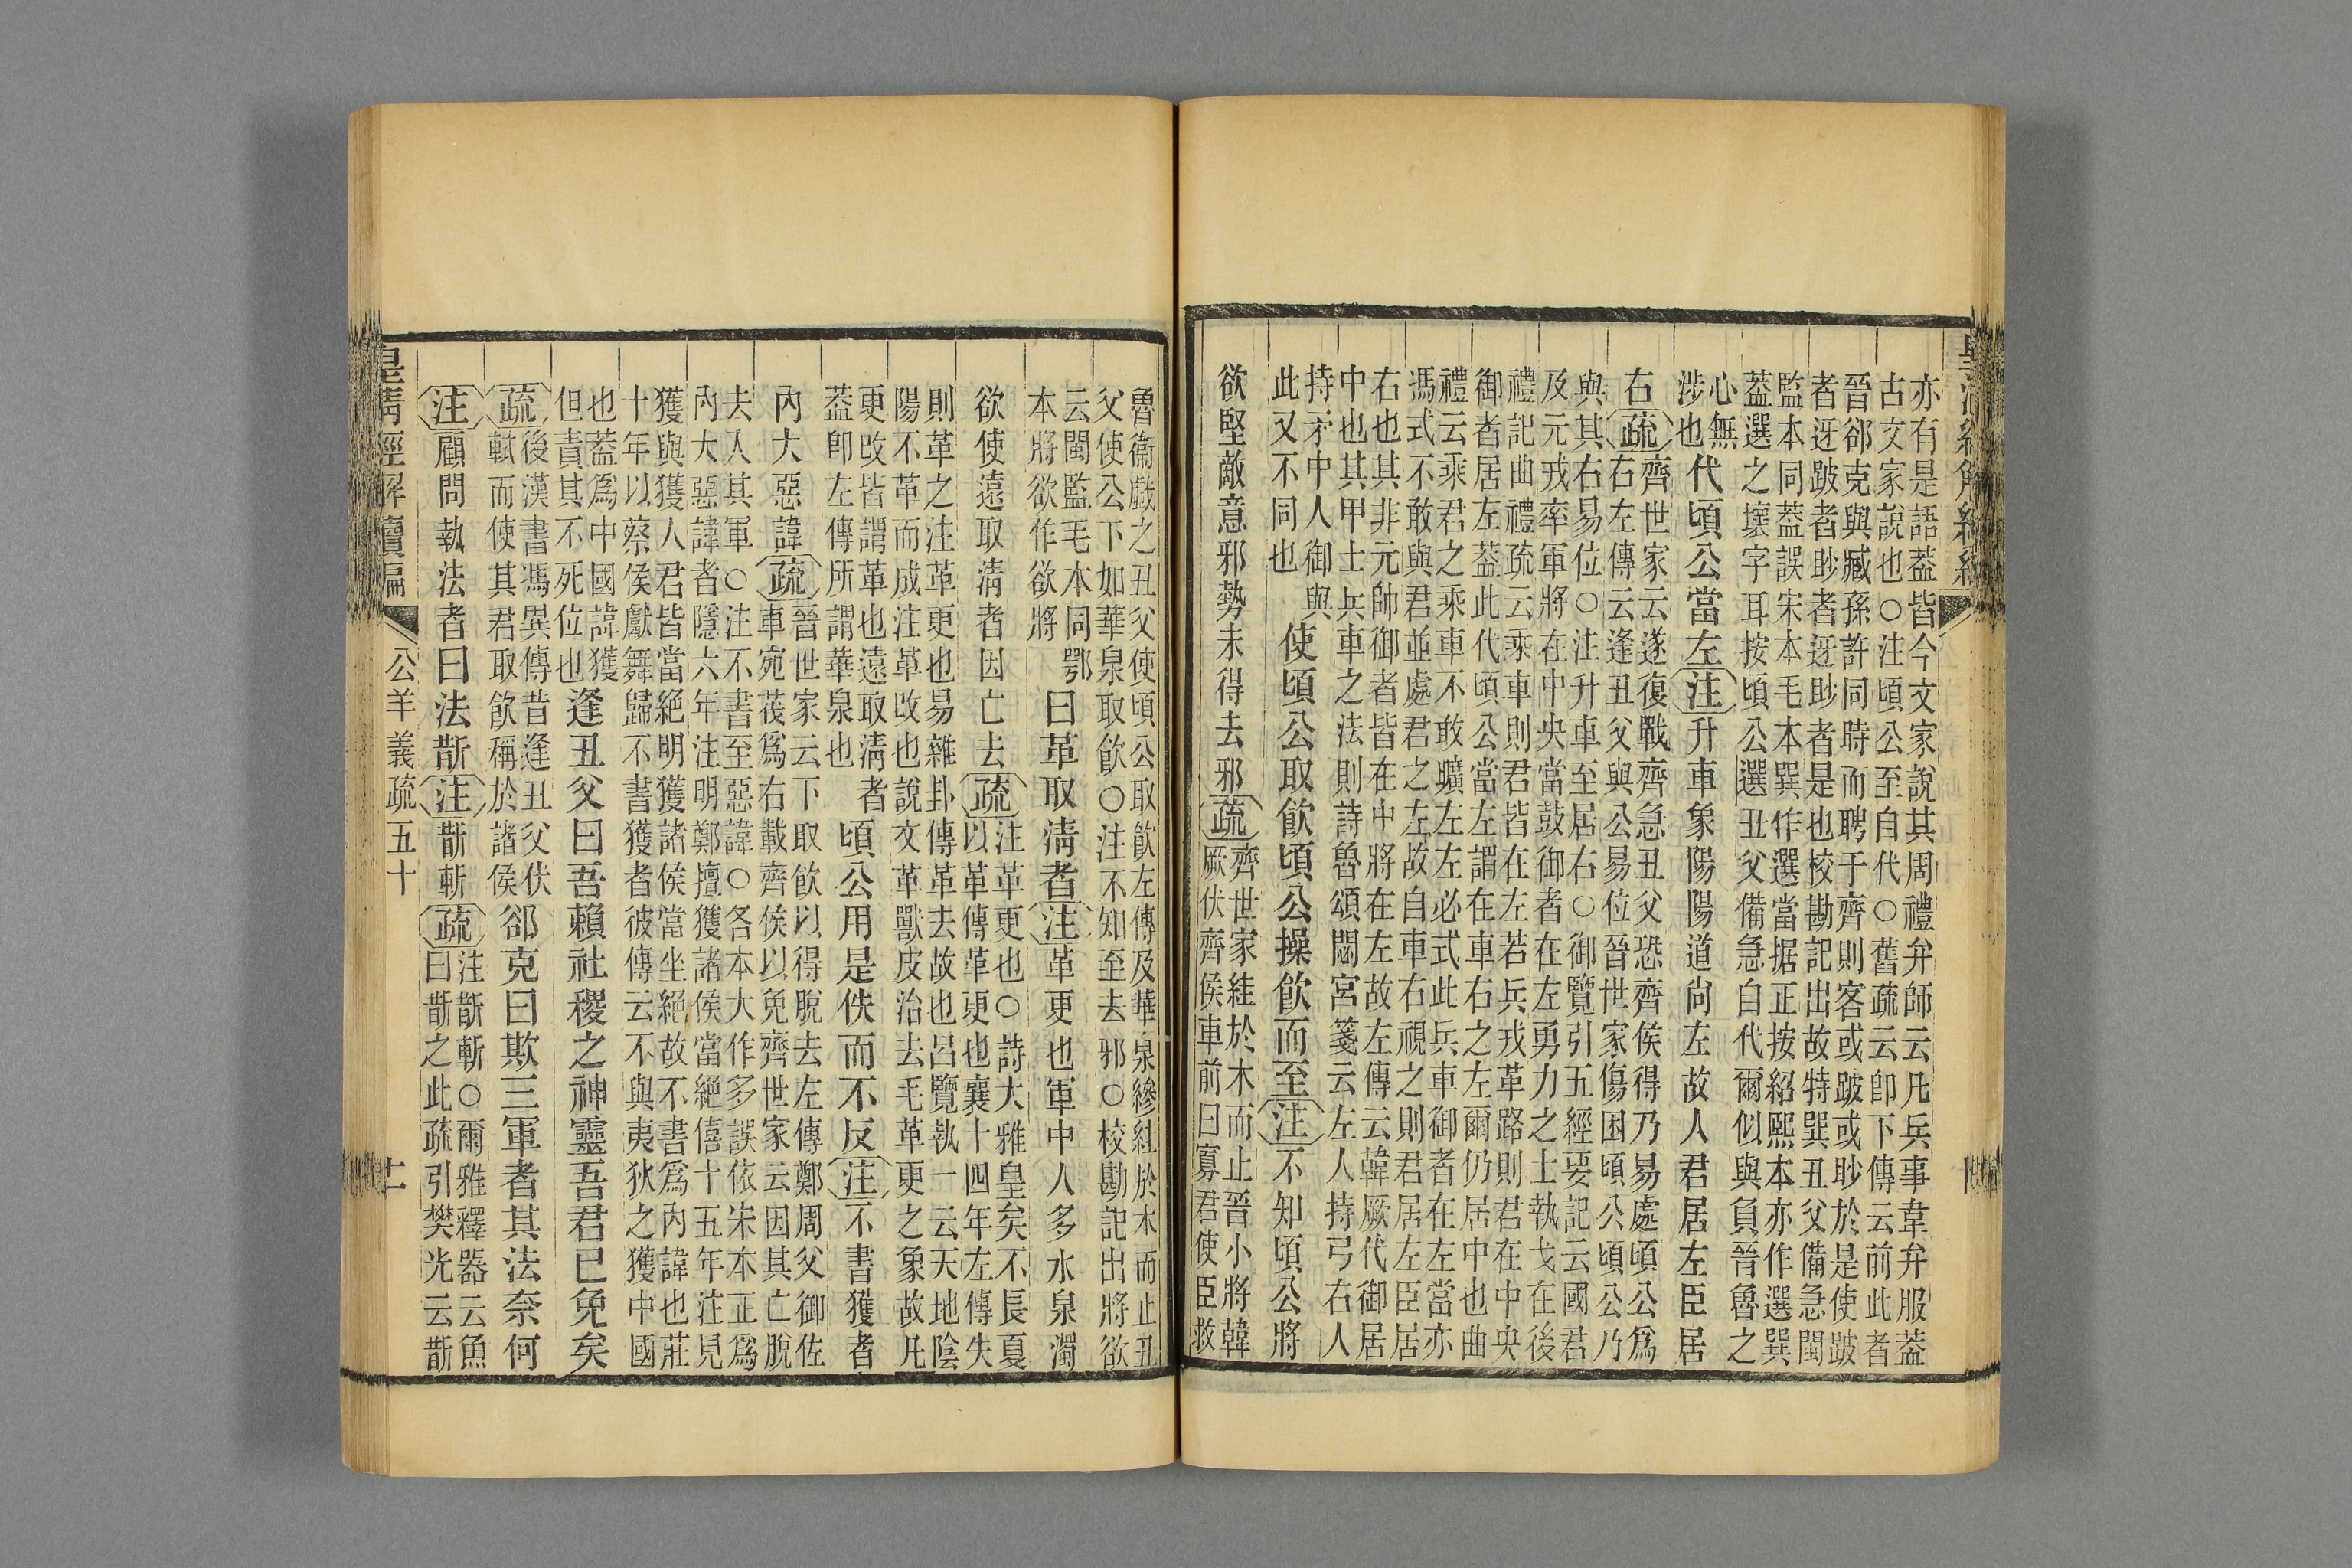 亦有是語蓋皆今文家說其周禮弁師云凡兵事韋弁服蓋
古文家說也○注頃公至自代○舊疏云卽下傳云前此者
晉郤克與臧孫許同時而聘于齊則客或跛或眇於是使跛
者迓跛者眇者迓眇者是也校勘記出故特巽丑父備急閩
監本同蓋誤宋本毛本巽作選當据正按紹熙本亦作選巽
蓋選之壞字耳按頃公選丑父備急自代爾似與負晉魯之
心無
涉也
代頃公當左注升車象陽陽道尚左故人君居左臣居
右疏
齊世家云遂復戰齊急丑父恐齊侯得乃易處頃公爲
右左傳云逢丑父與公易位晉世家傷困頃公頃公乃
與其右易位○注升車至居右○御覽引五經要記云國君
及元戎率軍將在中央當鼓御者在左勇力之士執戈在後
禮記曲禮疏云乘車則君皆在左若兵戎革路則君在中央
御者居左蓋此代頃公當左謂在車右之左爾仍居中也曲
禮云乘君之乘車不敢曠左左必式此兵車御者在左當亦
馮式不敢與君並處君之左故自車右視之則君居左臣居
右也其非元帥御者皆在中將在左故左傳云韓厥代御居
中也其甲士兵車之法則詩魯頌閟宮箋云左人持弓右人
持矛中人御與
此又不同也
使頃公取飮頃公操飮而至注不知頃公將
欲堅敵意邪勢未得去邪疏
齊世家絓於木而止晉小將韓
厥伏齊侯車前曰寡君使臣救
魯衞戲之丑父使頃公取飮左傳及華泉縿絓於木而止丑
父使公下如華泉取飮○注不知至去邪○校勘記出將欲
云閩監毛本同鄂
本將欲作欲將
曰革取淸者注革更也軍中人多水泉濁
欲使遠取淸者因亡去疏
注革更也○詩大雅皇矣不長夏
以革傳革更也襄十四年左傳失
則革之注革更也易雜卦傳革去故也呂覽執一云天地陰
陽不革而成注革改也說文革獸皮治去毛革更之象故凡
更改皆謂革也遠取淸者
蓋卽左傳所謂華泉也
頃公用是佚而不反注不書獲者
內大惡諱疏
晉世家云下取飮以得脫去左傳鄭周父御佐
車宛茷爲右載齊侯以免齊世家云因其亡脫
去入其軍○注不書至惡諱○各本大作多誤依宋本正爲
內大惡諱者隱六年注明鄭擅獲諸侯當絕僖十五年注見
獲與獲人君皆當絕明獲諸侯當坐絕故不書爲內諱也莊
十年以蔡侯獻舞歸不書獲者彼傳云不與夷狄之獲中國
也蓋爲中國諱獲
但責其不死位也
逢丑父曰吾賴社稷之神靈吾君已免矣
疏
後漢書馮異傳昔逢丑父伏
軾而使其君取飮稱於諸侯
郤克曰欺三軍者其法奈何
注顧問執法者曰法斮注斮斬疏
注斮斬○爾雅釋器云魚
曰斮之此疏引樊光云斮
皇淸經解續編 公羊義疏五十 十一